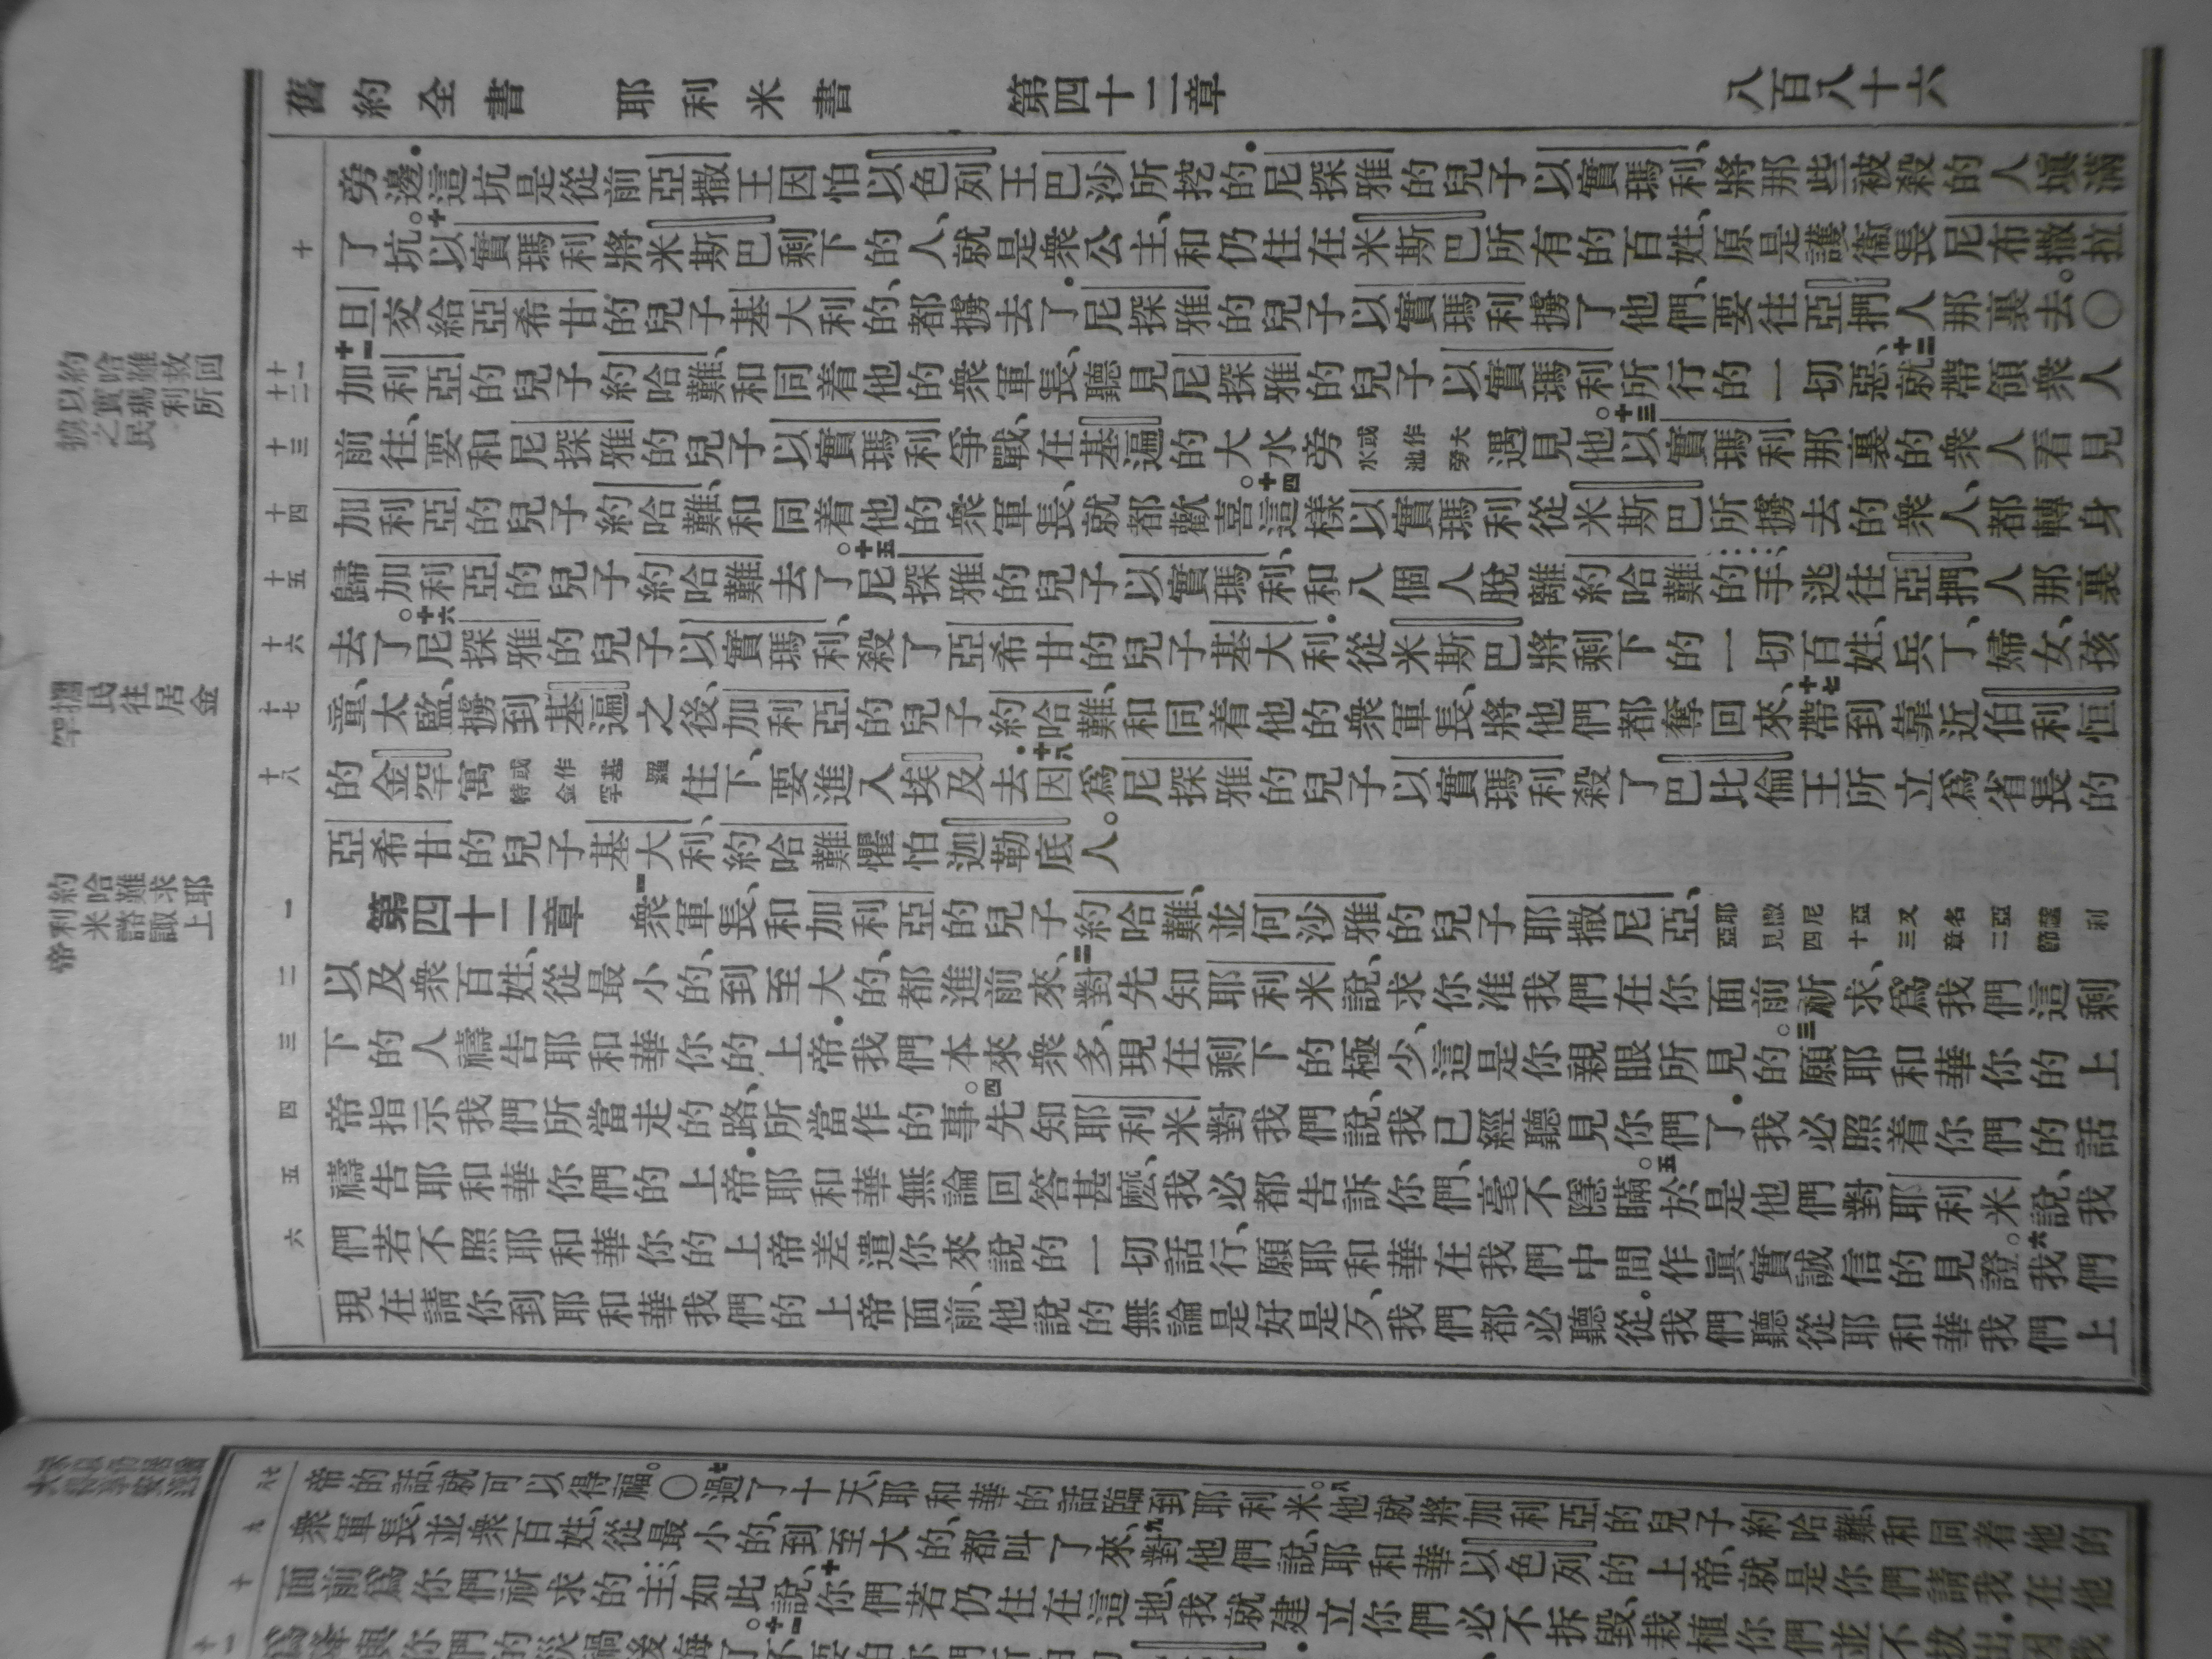 舊約全書 耶利米書 第四十二章 八百八十六
旁邊．這坑是從前亞撒王因怕以色列王巴沙所挖的．尼探雅的兒子以實瑪利、將那些被殺的人填滿
了坑。十以實瑪利將米斯巴剩下的人、就是衆公主、和仍住在米斯巴所有的百姓、原是護衞長尼布撒拉
旦交給亞希甘的兒子基大利的、都擄去了．尼探雅的兒子以實瑪利擄了他們、要往亞捫人那裏去。〇
十一加利亞的兒子約哈難、和同着他的衆軍長、聽見尼探雅的兒子以實瑪利所行的一切惡、十二就帶領衆人
前往、要和尼探雅的兒子以實瑪利爭戰、在基遍的大水旁或作大水池旁遇見他。十三以實瑪利那裏的衆人看見
加利亞的兒子約哈難、和同着他的衆軍長、就都歡喜。十四這樣以實瑪利從米斯巴所擄去的衆人、都轉身
歸加利亞的兒子約哈難去了。十五尼探雅的兒子以實瑪利、和八個人脫離約哈難的手、逃往亞捫人那裏
去了。十六尼探雅的兒子以實瑪利、殺了亞希甘的兒子基大利．從米斯巴將剩下的一切百姓、兵丁、婦女、孩
童、太監、擄到基遍之後、加利亞的兒子約哈難、和同着他的衆軍長、將他們都奪回來、十七帶到靠近伯利恒
的金罕寓或作基羅特金罕住下、要進入埃及去．十八因爲尼探雅的兒子以實瑪利殺了巴比倫王所立爲省長的
亞希甘的兒子基大利、約哈難懼怕迦勒底人。
第四十二章 一衆軍長、和加利亞的兒子約哈難、並何沙雅的兒子耶撒尼亞、耶撒尼亞又名亞薩利亞見四十三章二節
以及衆百姓、從最小的、到至大的、都進前來、二對先知耶利米說、求你准我們在你面前祈求、爲我們這剩
下的人禱告耶和華你的上帝．我們本來衆多、現在剩下的極少、這是你親眼所見的。三願耶和華你的上
帝指示我們所當走的路、所當作的事。四先知耶利米對我們說、我已經聽見你們了．我必照着你們的話
禱告耶和華你們的上帝．耶和華無論回答甚麼、我必都告訴你們、毫不隱瞞。五於是他們對耶利米說、我
們若不照耶和華你的上帝差遣你來說的一切話行、願耶和華在我們中間作眞實誠信的見證。六我們
現在請你到耶和華我們的上帝面前、他說的無論是好是歹、我們都必聽從。我們聽從耶和華我們上
約哈難救回
以實瑪利所
擄之民
擱民往居金
罕
約哈難求耶
利米諮諏上
帝
帝的話、就可以得福。〇七過了十天、耶和華的話臨到耶利米。八他就將加利亞的兒子約哈難、和同着他的
衆軍長、並衆百姓、從最小的、到至大的、都叫了來、九對他們說、耶和華以色列的上帝、就是你們請我在他
面前爲你們祈求的主、如此說、十你們若仍住在這地、我就建立你們、必不拆毀、栽植你們、並不拔出．因我